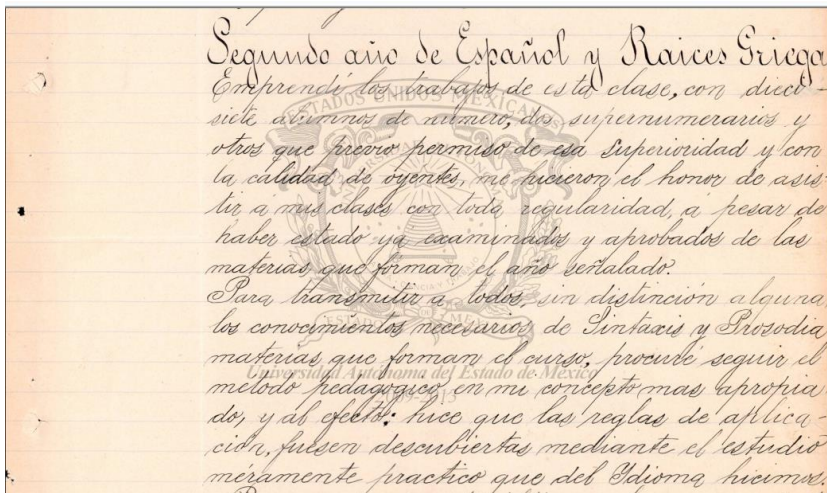 Segundo año de Español y Raices Griega
Emprendí los trabajos de esta clase, con dieci-
siete alumnos de numero, dos supernumerarios y
otros que previo permiso de esa Superioridad y con
la calidad de oyentes, me hicieron el honor de asis-
tir á mis clases con toda regularidad, a pesar de
haber estado ya examinados y aprobados de las
materias que forman el año señalado.
Para transmitir a todos, sin distinción alguna
los conocimientos necesarios, de Sintaxis y Prosodia
materias que forman el curso, procuré seguir el
metodo pedagogico en mi concepto mas apropia
do, y al efecto: hice que las reglas de aplica-
ción, fuesen descubiertas mediante el estudio
méramente practico que del Idioma hicimos.
ESTADOS UNIDOS MEXICANOS
Universidad Autónoma del Estado de México